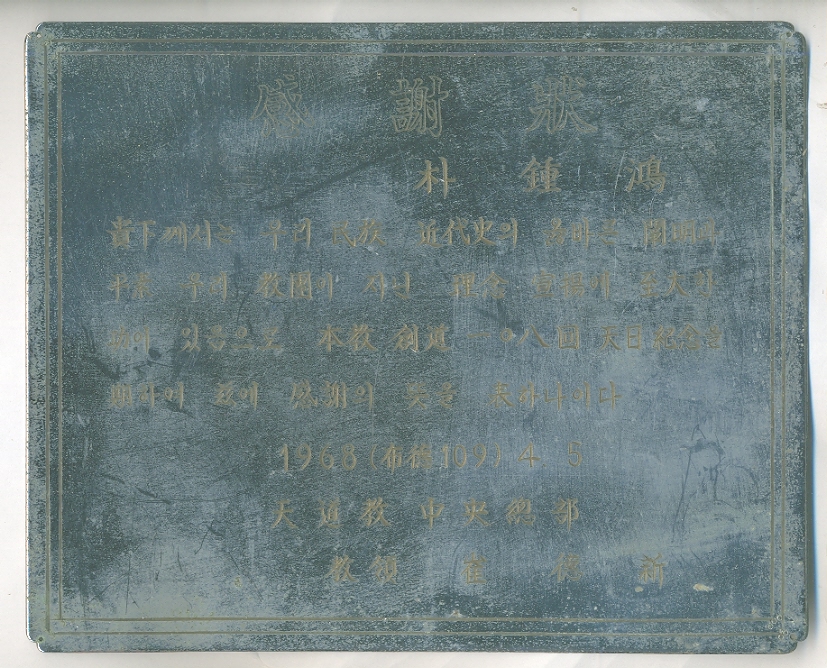 感謝狀
朴鍾鴻
貴下께서는 우리 民族 近代史의 올바른 闡明과
우리 敎團이 지닌 理念 至大한
있음으로 本敎 創道 一〇八回 天日紀念을
期하여 玆에 感謝의 뜻을 表하나이다
1968(布德109) 4 5
天道敎中央總部
敎領 崔德新